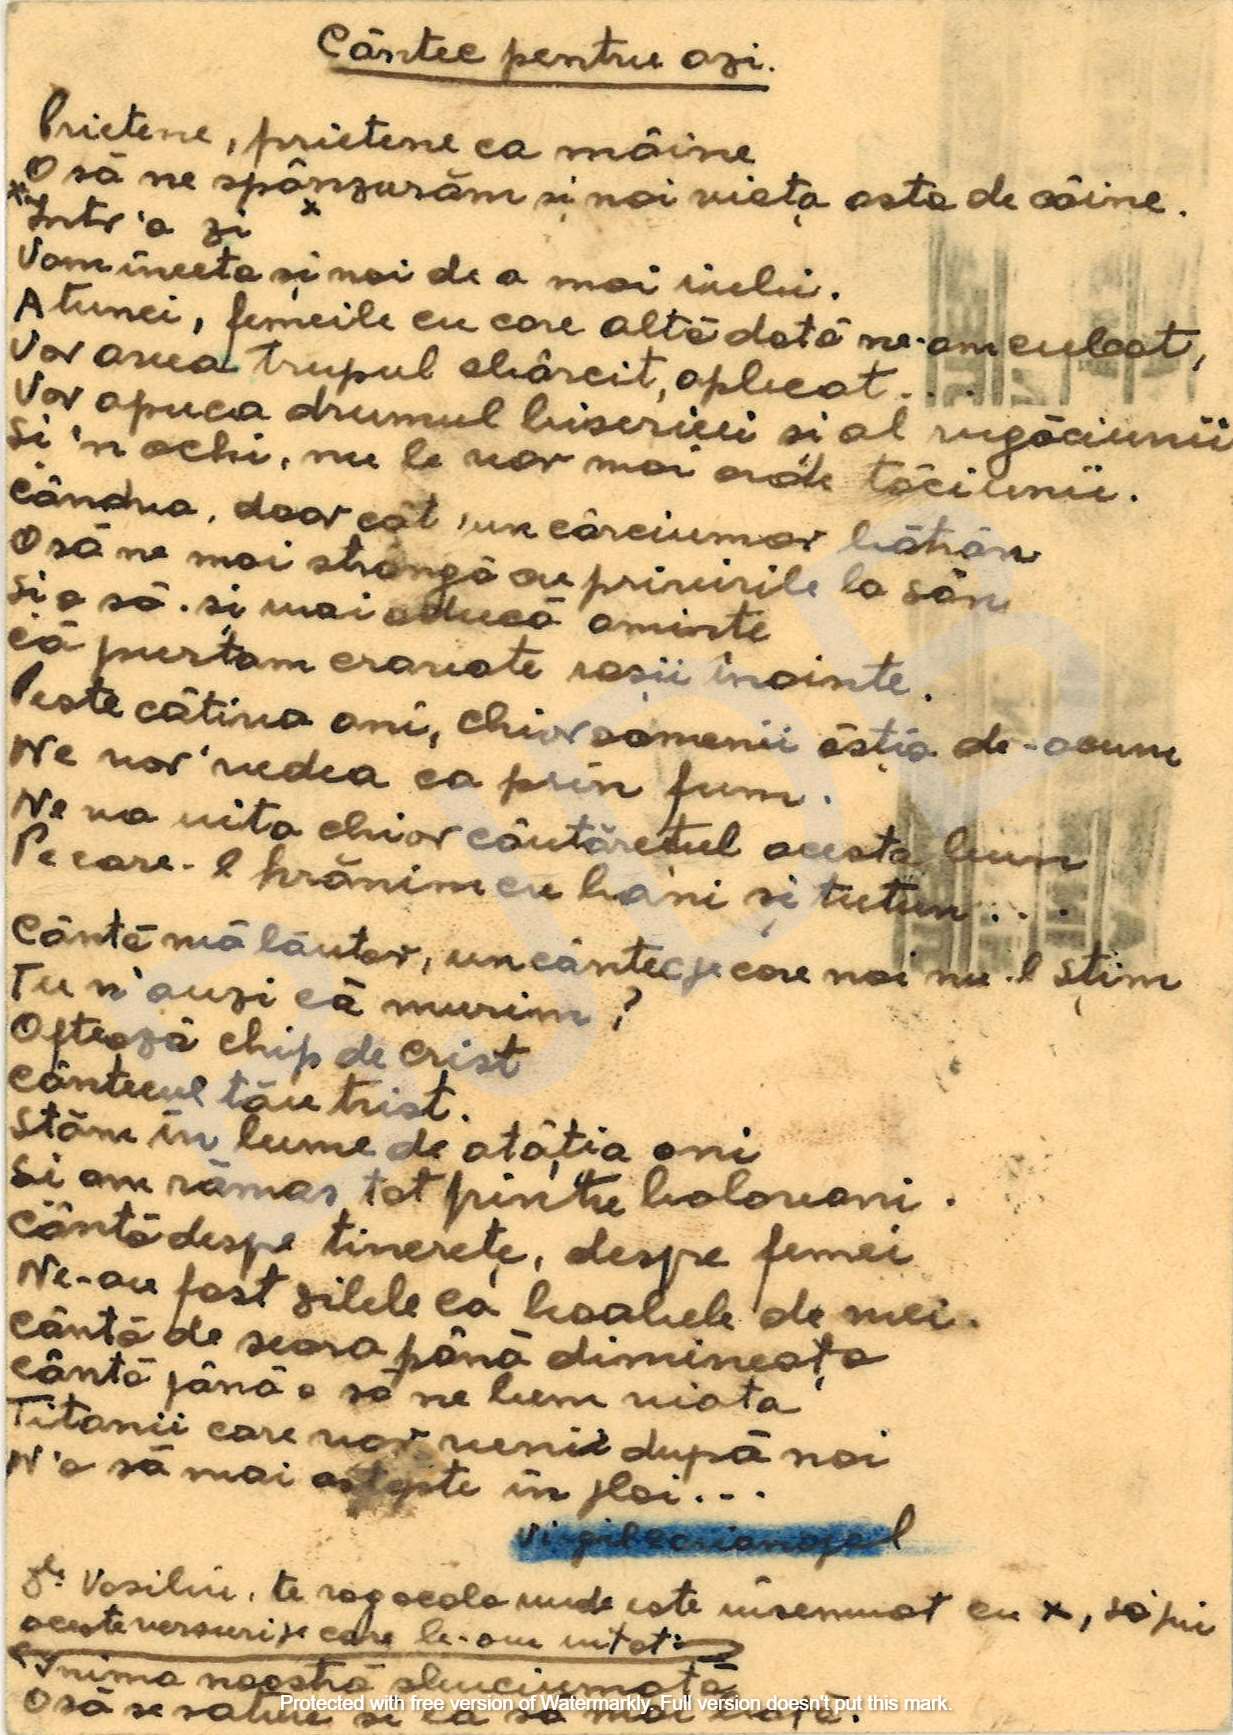 Cântec pentru azi.
Prietene, prietene ca mâine
O să ne spânzurăm și noi viața asta de câine.
x Într'o zi x
Vom înceta și noi de a mai iubi.
Atunci, femeile cu care altă dată ne-am culcat,
Vor avea trupul chârcit, aplecat...
Vor apuca drumul bisericii și al rugăciunii
Si 'n ochi, nu le vor mai arde tăciunii.
Cândva, doar cât un cârciumar bătrân
O să ne mai strângă cu privirile la sân
Si o să-și mai aducă aminte
Că purtam cravate roșii înainte.
Peste câtiva ani, chiar oamenii ăștia de-acum
Ne vor vedea ca prin fum.
Ne va uita chiar cântărețul acesta bun
Pe care-l hrănim cu bani și tutun...
Cântă mă lăutar, un cântec pe care noi nu-l știm
Tu n'auzi că murim?
Oftează chip de Crist
Cântecul tău trist.
Stăm în lume de atâția ani
Si am rămas tot printre bolovani.
Cântă despre tinerețe, despre femei
Ne-au fost zilele ca boabele de mei.
Cântă de seara până dimineața
Cântă până o să ne bem viata
Titanii care vor venii după noi
N'o să mai aștepte în ploi...
Virgil Carianopol
Dle Vasiliu, te rog acolo unde este însemnat cu x, să pui
aceste versuri pe care le-am uitat:
Inima noastră sbuciumată
O să se sature și ea să mai bată.
Protected with free version of Watermarkly. Full version doesn't put this mark.